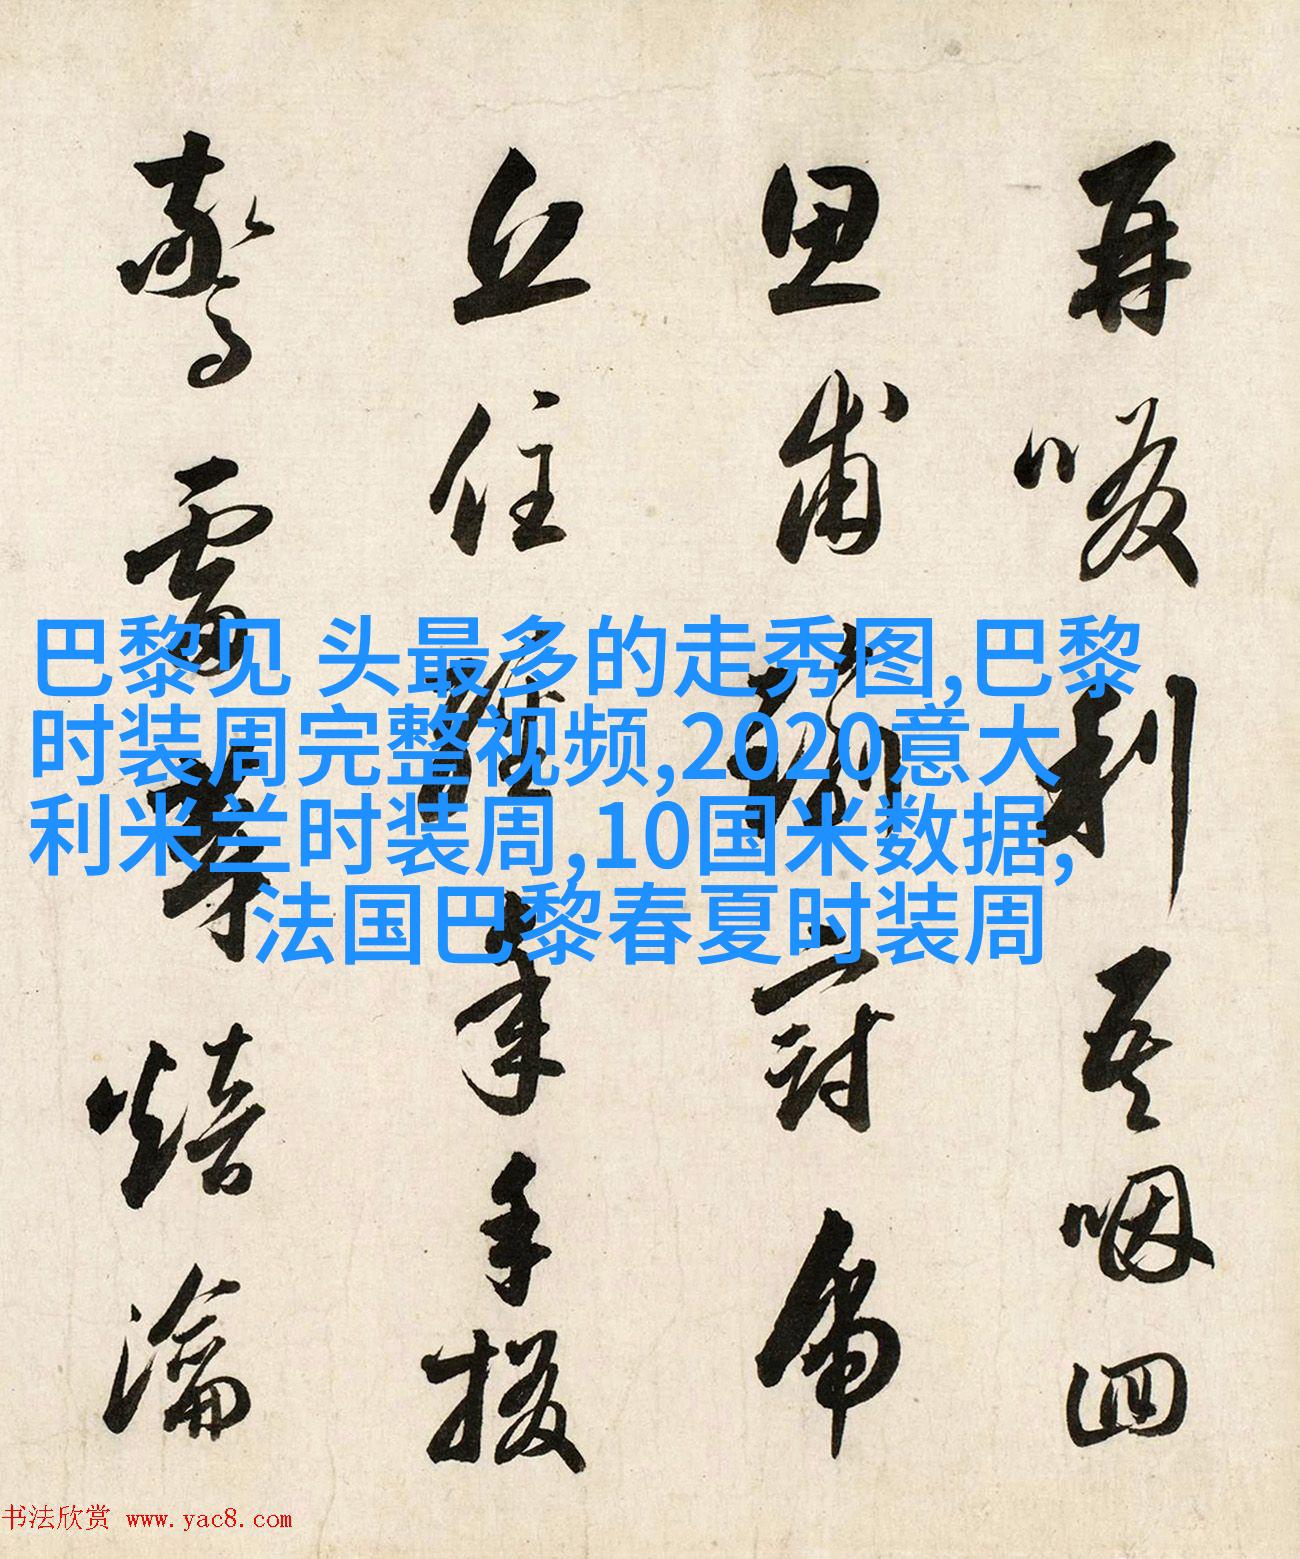 巴黎见 头最多的走秀图,巴黎
时装周完整视频,2020意大
利米兰时装周,10国米数据,
法国巴黎春夏时装周
再啜利吾咽四
思甫
丘住手掇
驚雷焙瀹
书法欣赏 www.yac8.com